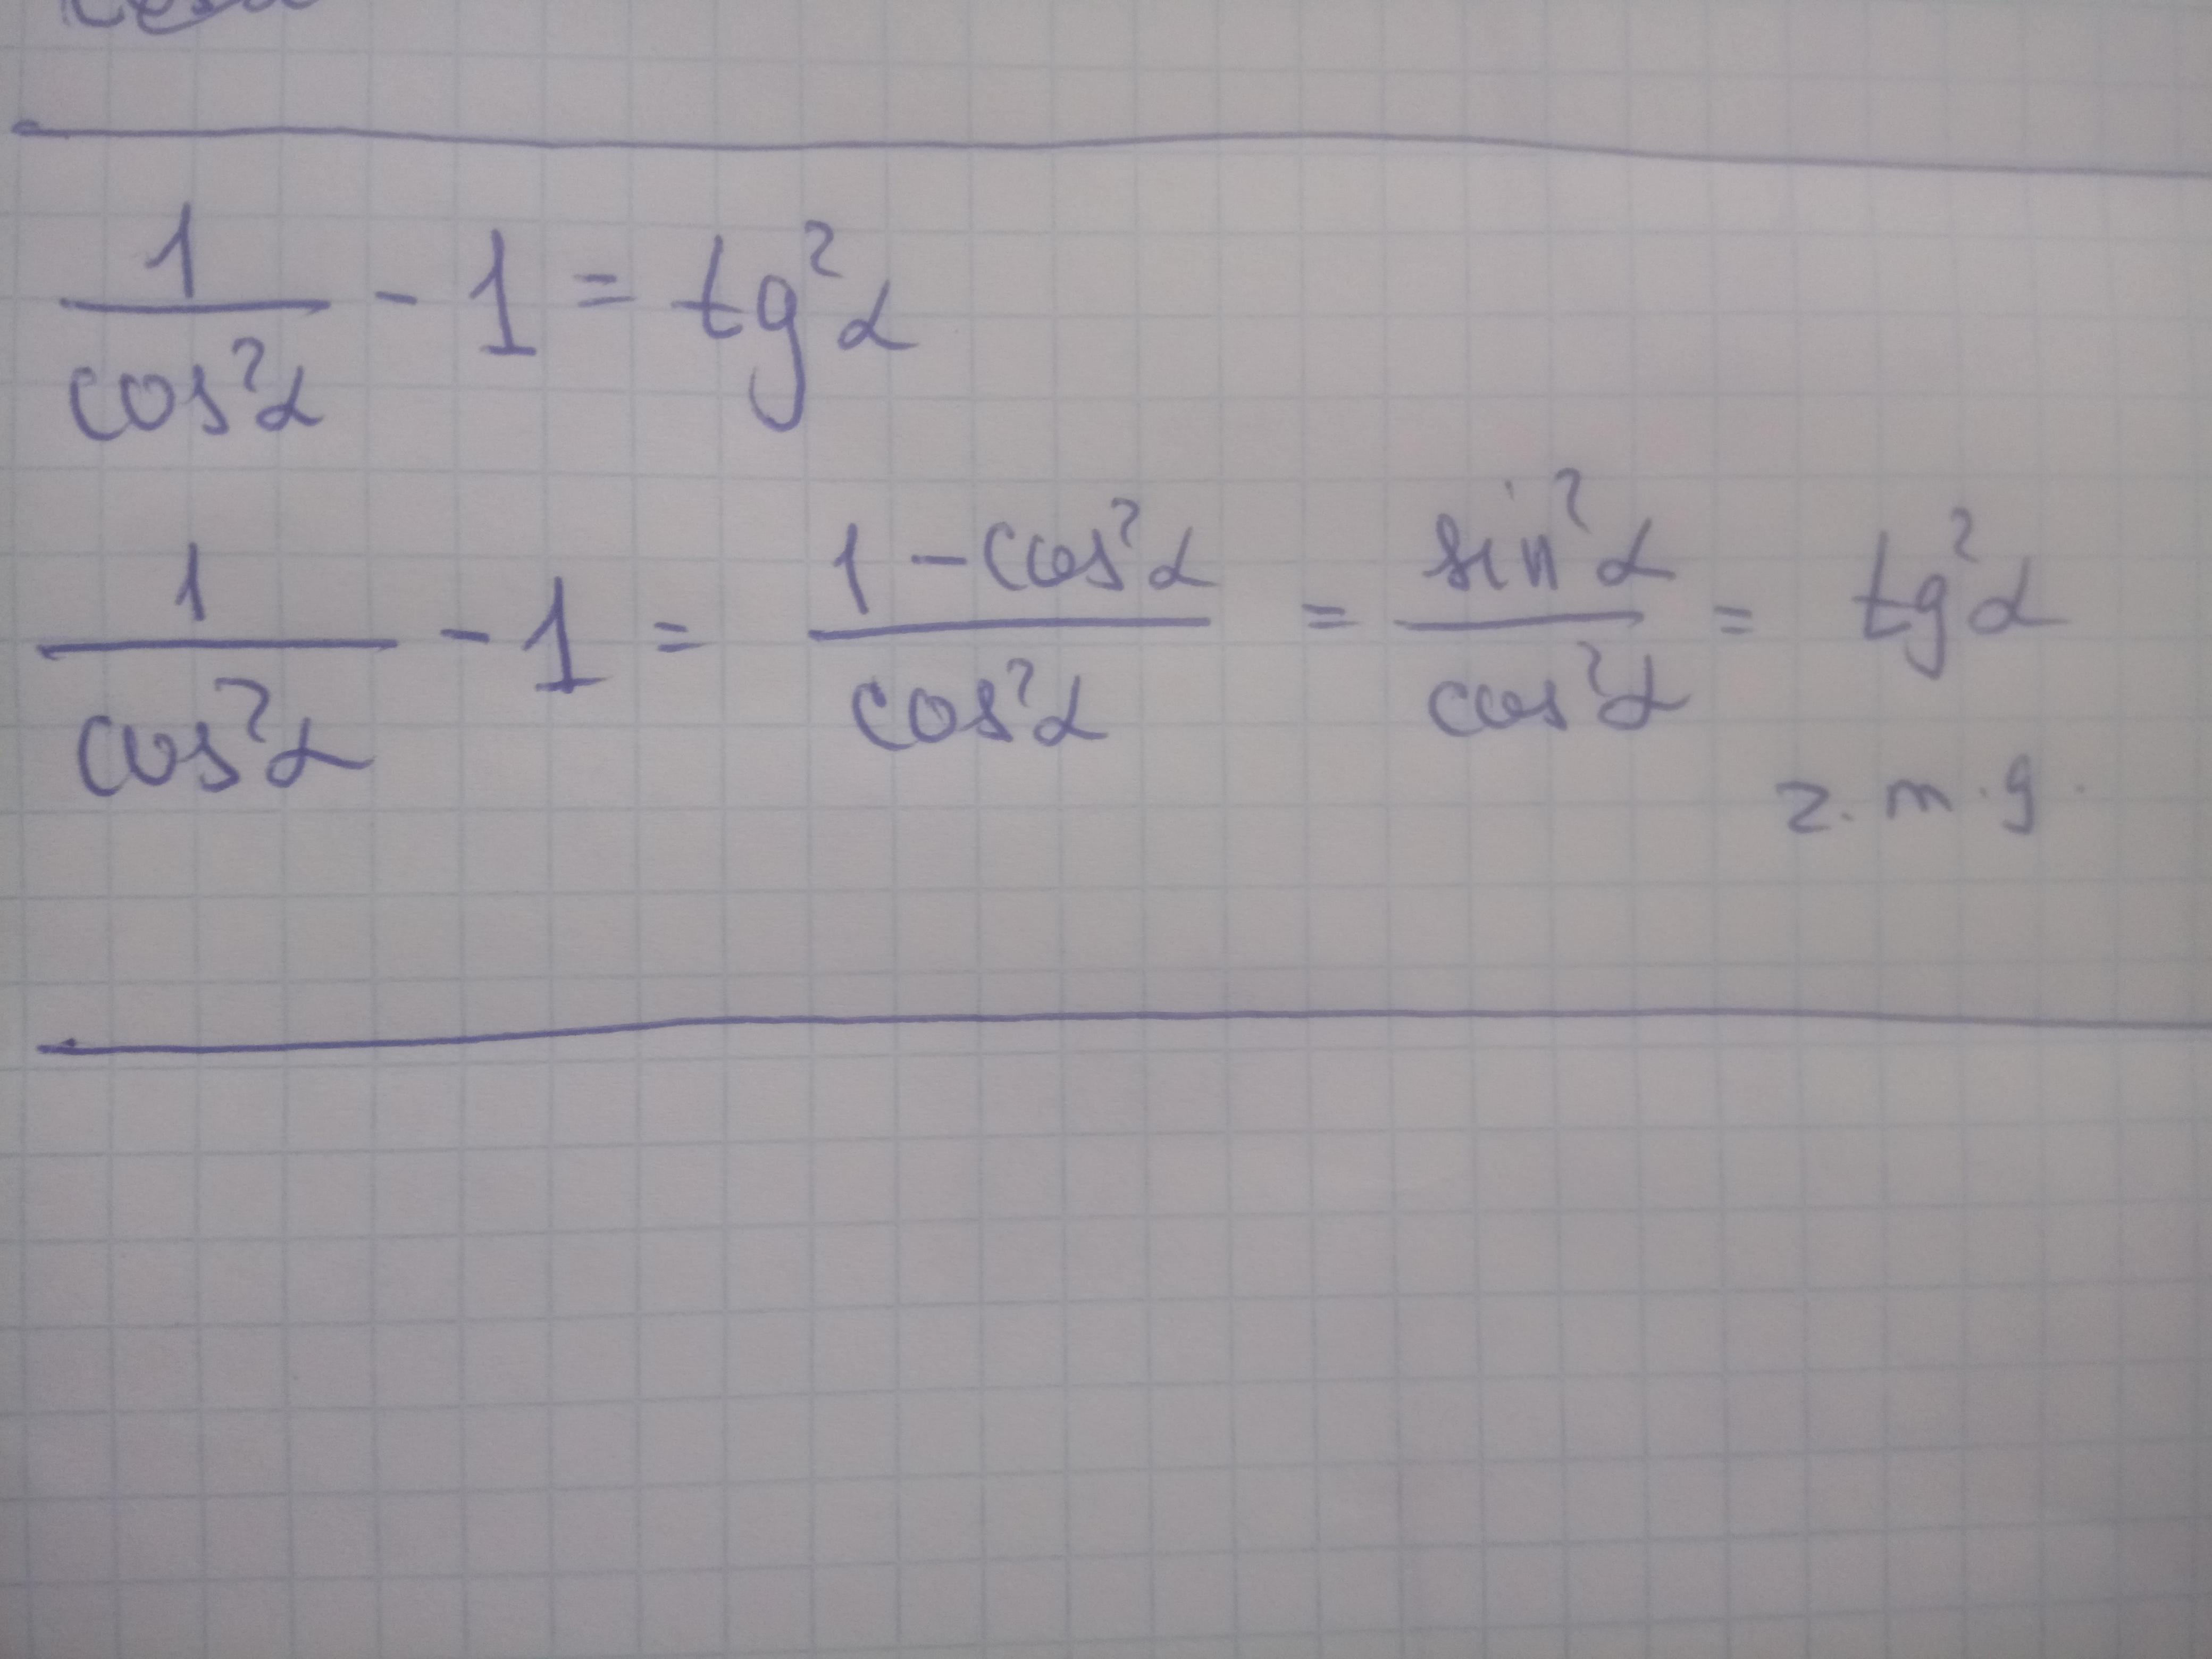 1/cos²α - 1 = tg²α
1/cos²α - 1 = (1 - cos²α)/cos²α = sin²α/cos²α = tg²α
z. m. g.